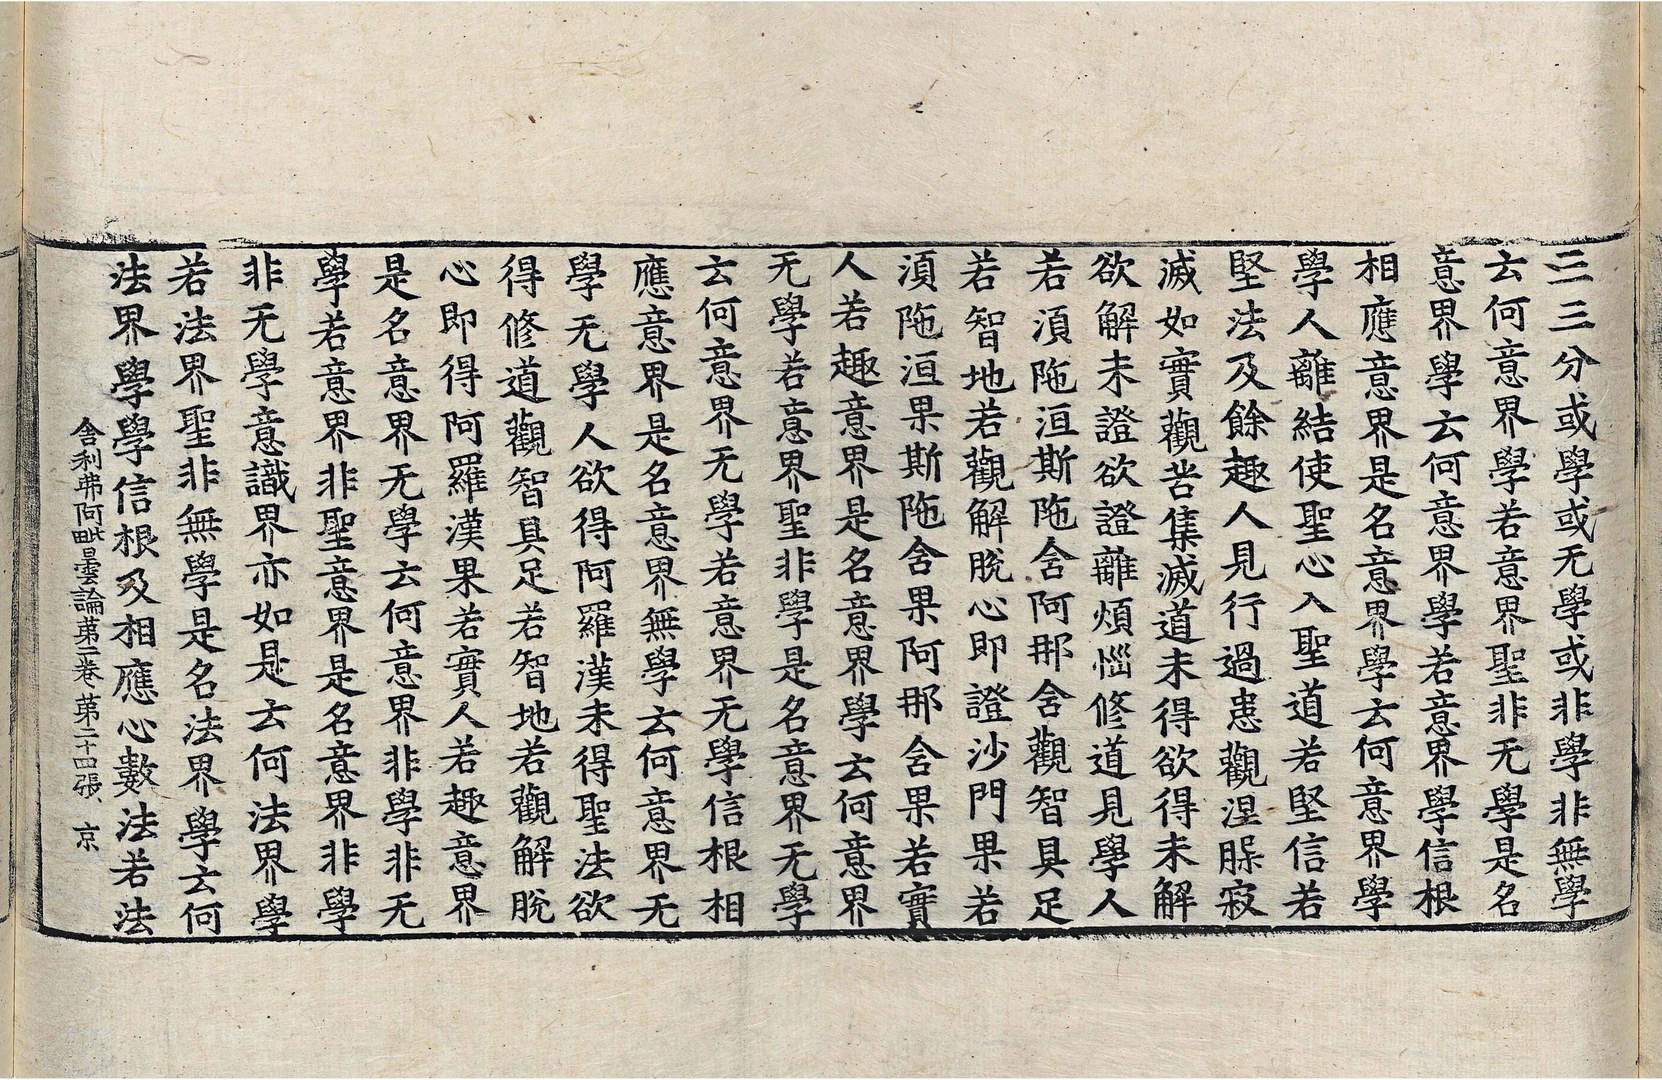 三三分或學或无學或非學非無學
云何意界學若意界聖非无學是名
意界學云何意界學若意界學信根
相應意界是名意界學云何意界學
學人離結使聖心入聖道若堅信若
堅法及餘趣人見行過患觀涅槃寂
滅如實觀苦集滅道未得欲得未解
欲解未證欲證離煩惱修道見學人
若湏陁洹斯陁含阿那含觀智具足
若智地若觀解脫心即證沙門果若
湏陁洹果斯陁含果阿那含果若實
人若趣意界是名意界學云何意界
无學若意界聖非學是名意界无學
云何意界无學若意界无學信根相
應意界是名意界無學云何意界无
學无學人欲得阿羅漢未得聖法欲
得修道觀智具足若智地若觀解脫
心即得阿羅漢果若實人若趣意界
是名意界无學云何意界非學非无
學若意界非聖意界是名意界非學
非无學意識界亦如是云何法界學
若法界聖非無學是名法界學云何
法界學學信根及相應心數法若法
舍利弗阿毗曇論第二卷 第二十四張 京